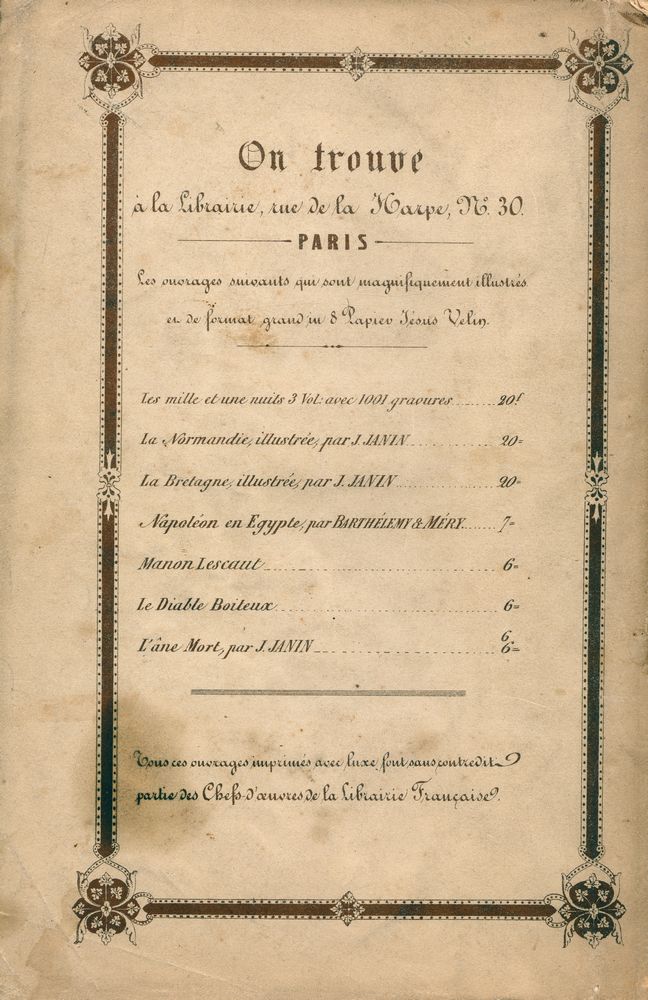 On trouve
à la Librairie, rue de la Harpe, N° 30.
PARIS
Les ouvrages suivants qui sont magnifiquement illustrés
et de format grand in 8 Papier Jésus Velin.
Les mille et une nuits 3 Vol: avec 1001 gravures ........ 20f
La Normandie, illustrée, par J. JANIN ........ 20=
La Bretagne, illustrée, par J. JANIN ........ 20=
Napoléon en Egypte, par BARTHÉLEMY & MÉRY ........ 7=
Manon Lescaut ........ 6=
Le Diable Boiteux ........ 6=
L'âne Mort, par J. JANIN ........ 6 6=
Tous ces ouvrages imprimés avec luxe font sans contredit
partie des Chefs-d'œuvres de la Librairie Française.